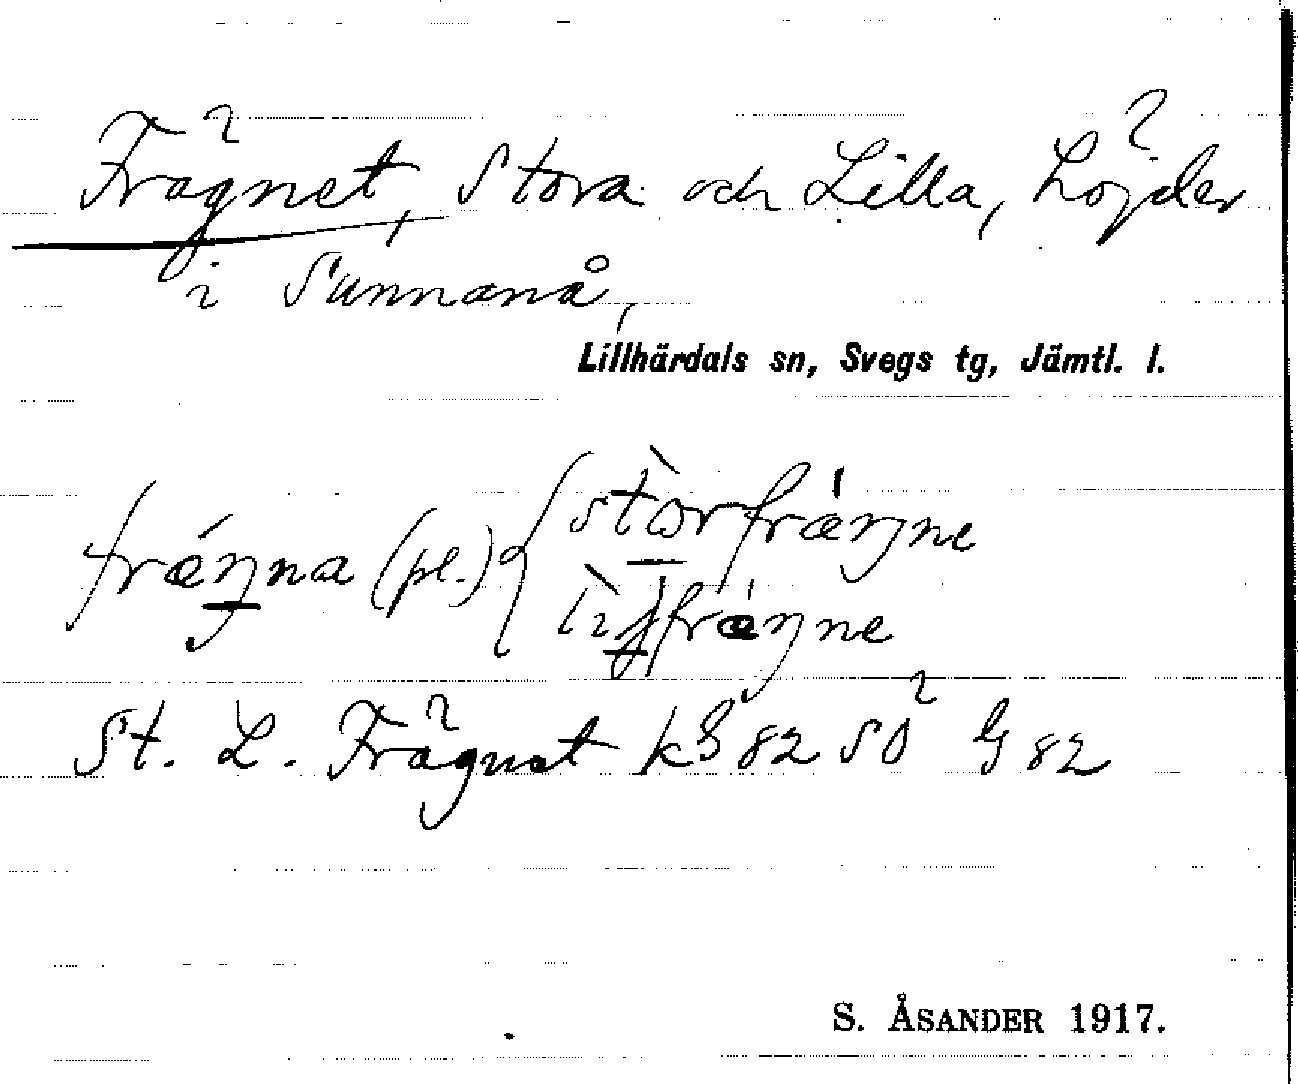 Frägnet, Stora och Lilla, höjder
i Sunnanå,
Lillhärdals sn, Svegs tg, Jämtl. l.
fræŋna (pl.) { stòrfræŋne
fræŋne
St. L. Frägnet k 82 SÖ G 82
S. ÅSANDER 1917.